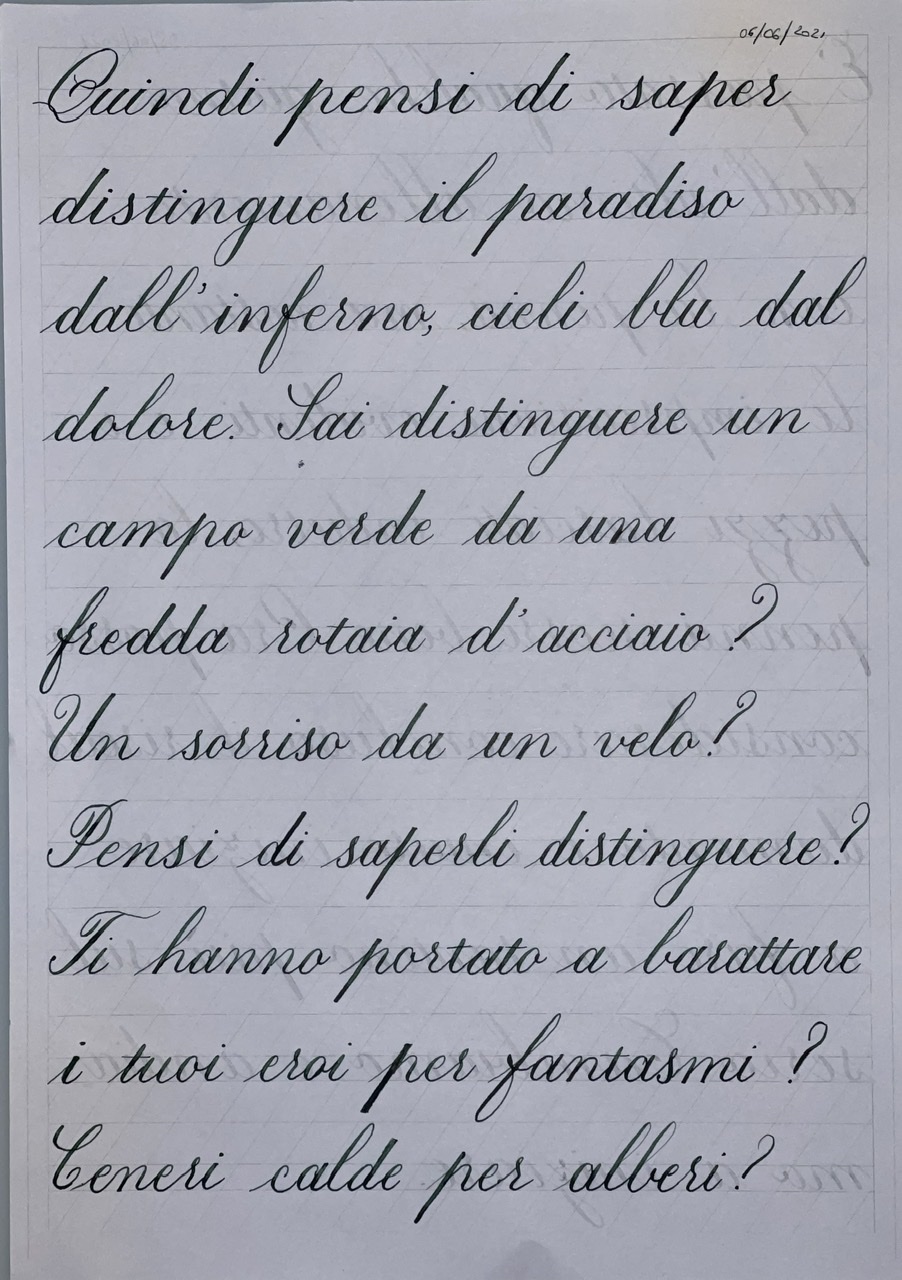 06/06/2021
Quindi pensi di saper
distinguere il paradiso
dall'inferno, cieli blu dal
dolore. Sai distinguere un
campo verde da una
fredda rotaia d'acciaio?
Un sorriso da un velo?
Pensi di saperli distinguere?
Ti hanno portato a barattare
i tuoi eroi per fantasmi?
Ceneri calde per alberi?